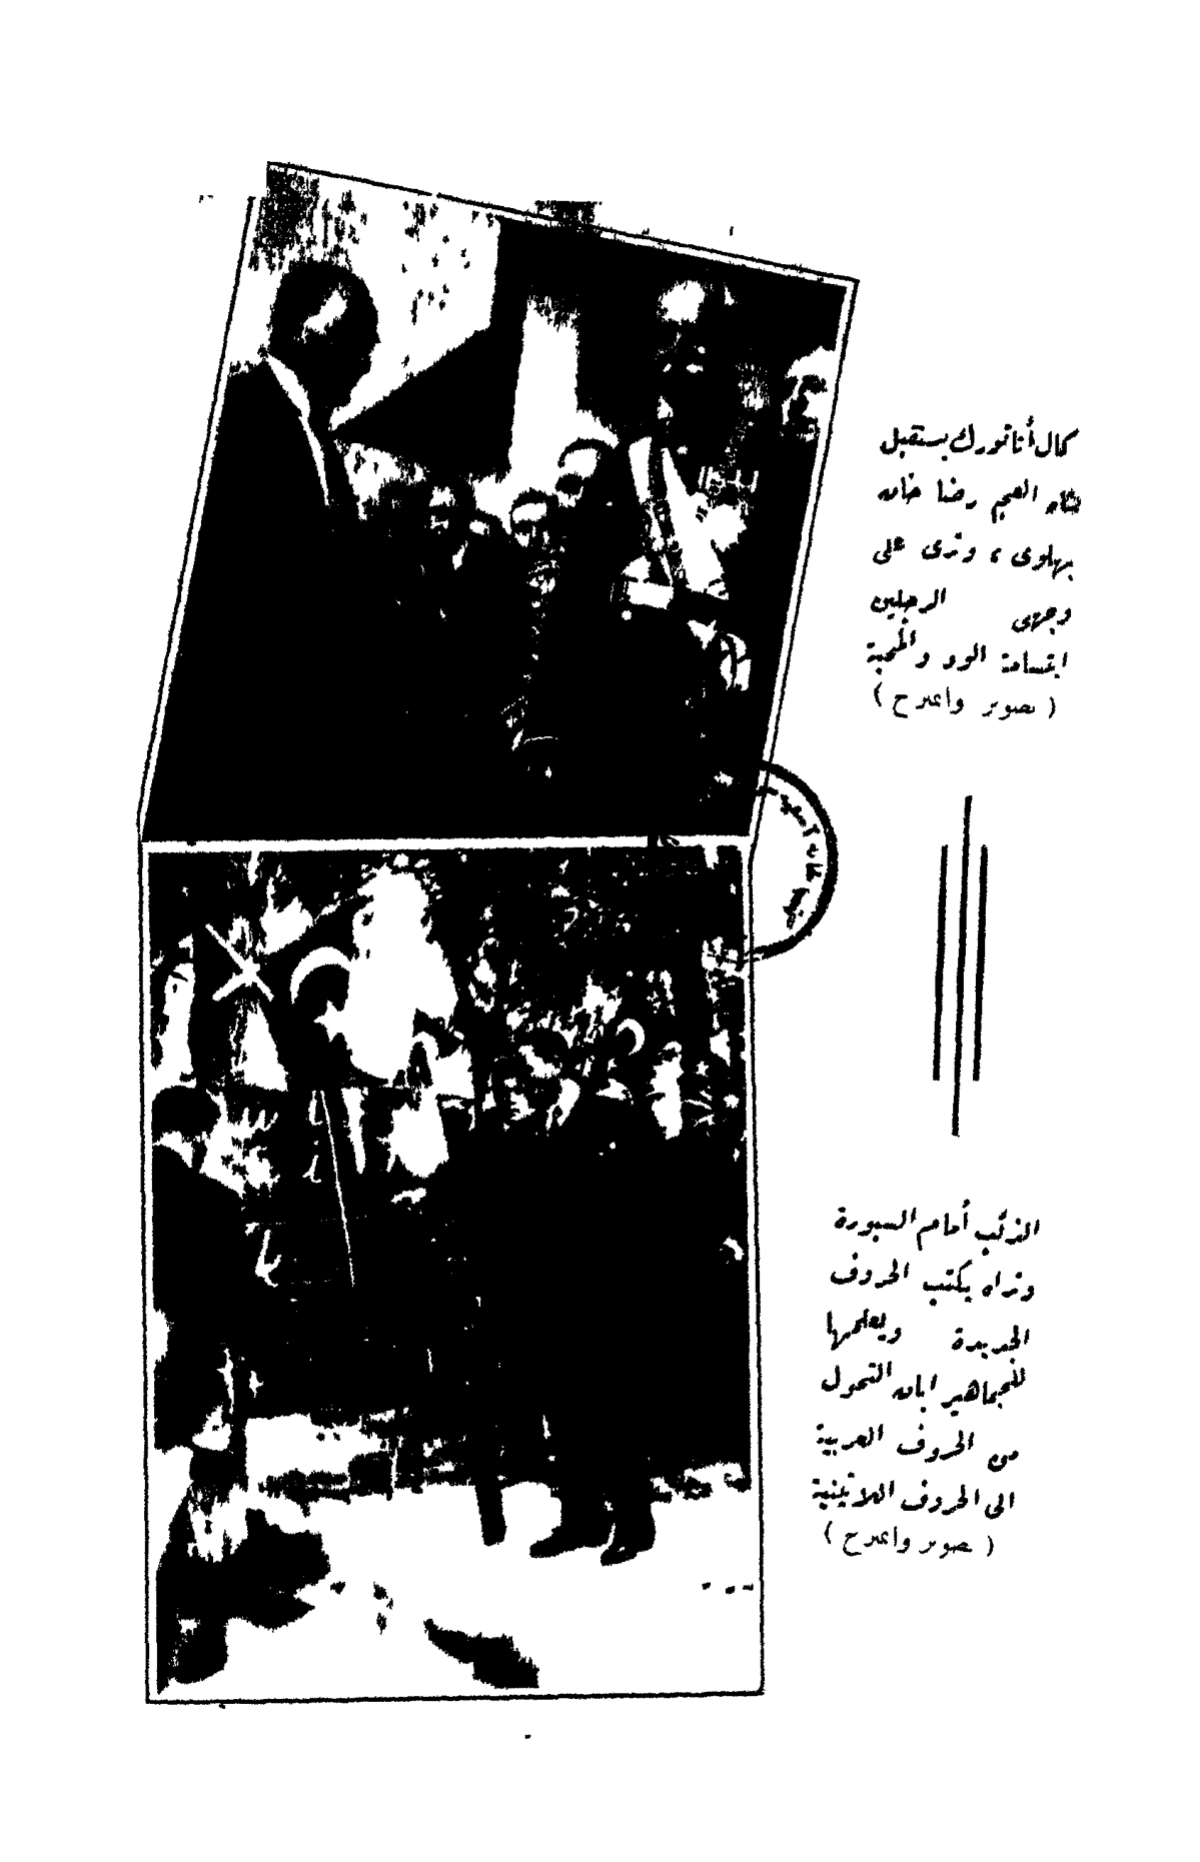 كمال أتاتورك يستقبل
شاه العجم رضا خان
بهلوى ، وترى على
وجهى الرجلين
ابتسامة الود والمحبة
( تصوير واعرح )
الذئب أمام السبورة
وتراه يكتب الحروف
الجديدة ويعلمها
للجماهير ابان التحول
من الحروف العربية
الى الحروف اللاتينية
( تصوير واعرح )